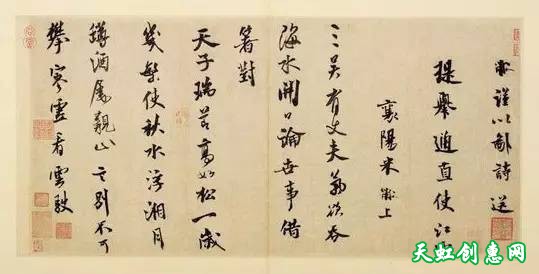 黻謹以鄙詩送
提舉通直使江西
襄陽米黻上
三吳有丈夫氣欲吞
海水開口論世事借
箸對
天子瑞節高如松一歲
幾繁使秋水浮湘月
鐏酒屬觀山言別不可
攀寒雲看雲駛
天虹创惠网